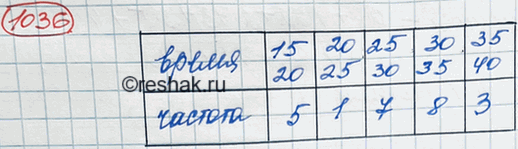 1036
время 15 20 25 30 35
20 25 30 35 40
частота 5 1 7 8 3
©reshak.ru